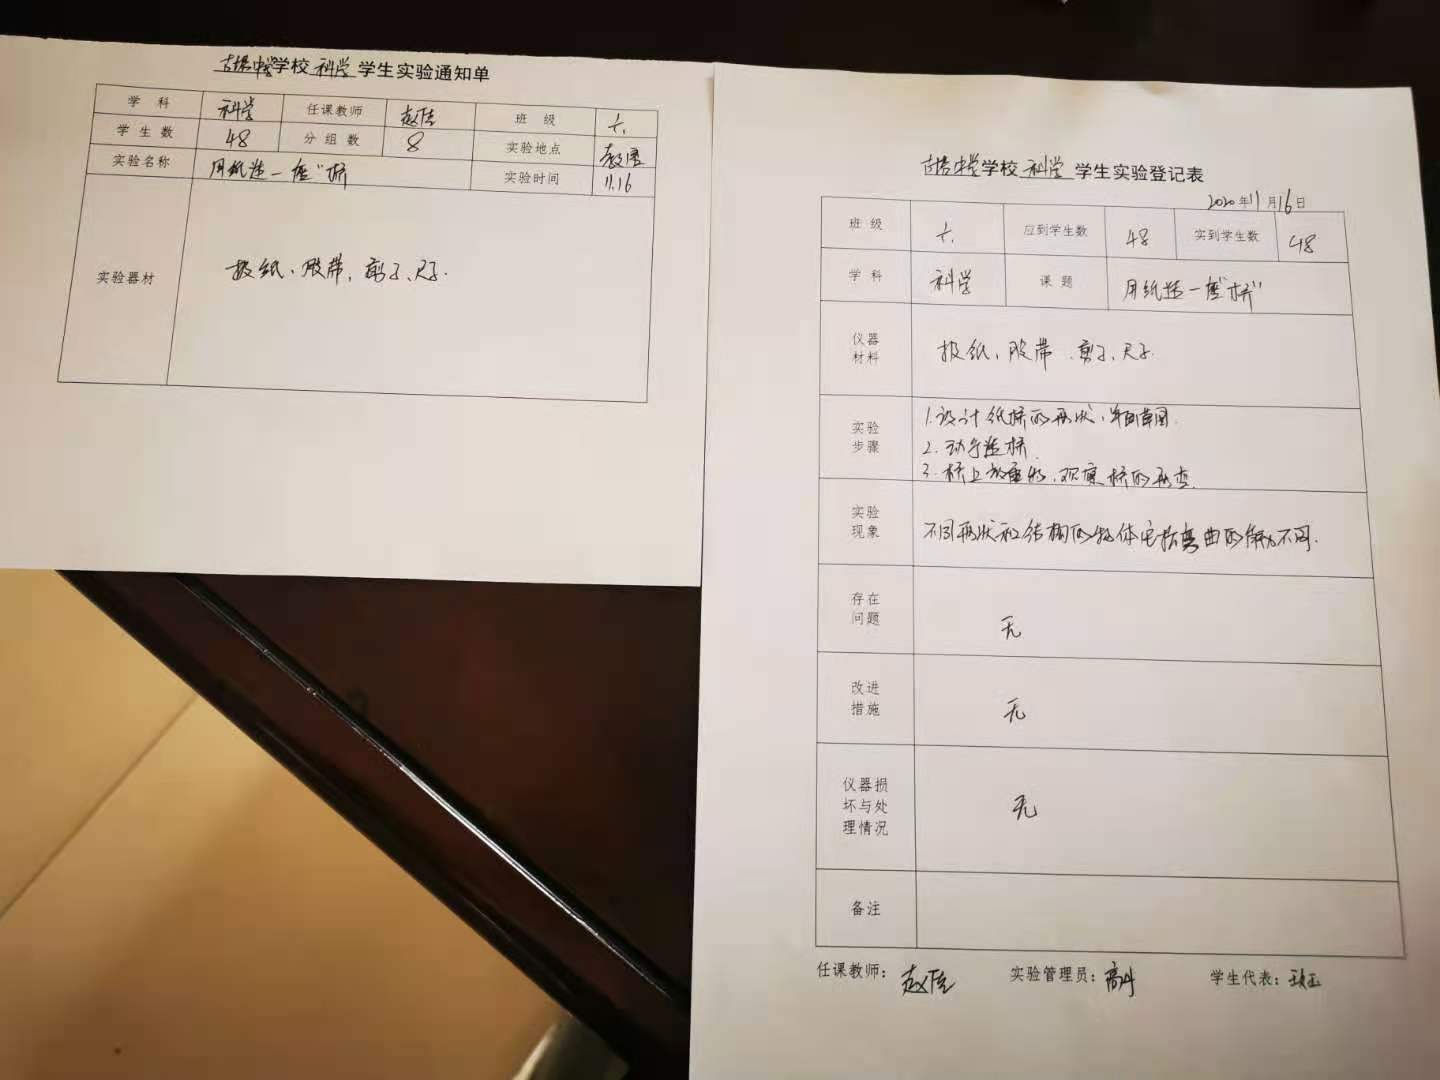 中学学校 科学 学生实验通知单
学科 科学 任课教师 赵佳 班级 六.
学生数 48 分组数 8 实验地点 教室
实验名称 用纸造一座"桥 实验时间 11.16
实验器材 报纸、胶带、剪子、尺子.
中学学校 科学 学生实验登记表
2020年11月16日
班级 六. 应到学生数 48 实到学生数 48
学科 科学 课题 用纸造一座"桥"
仪器材料 报纸、胶带、剪子、尺子.
实验步骤 1.设计纸桥的形状,草图.
2.动手造桥.
3.桥上放重物,观察桥的形变.
实验现象 不同形状和结构的物体它抗弯曲的能力不同.
存在问题 无
改进措施 无
仪器损坏与处理情况 无
备注
任课教师: 赵佳 实验管理员: 高丹 学生代表: